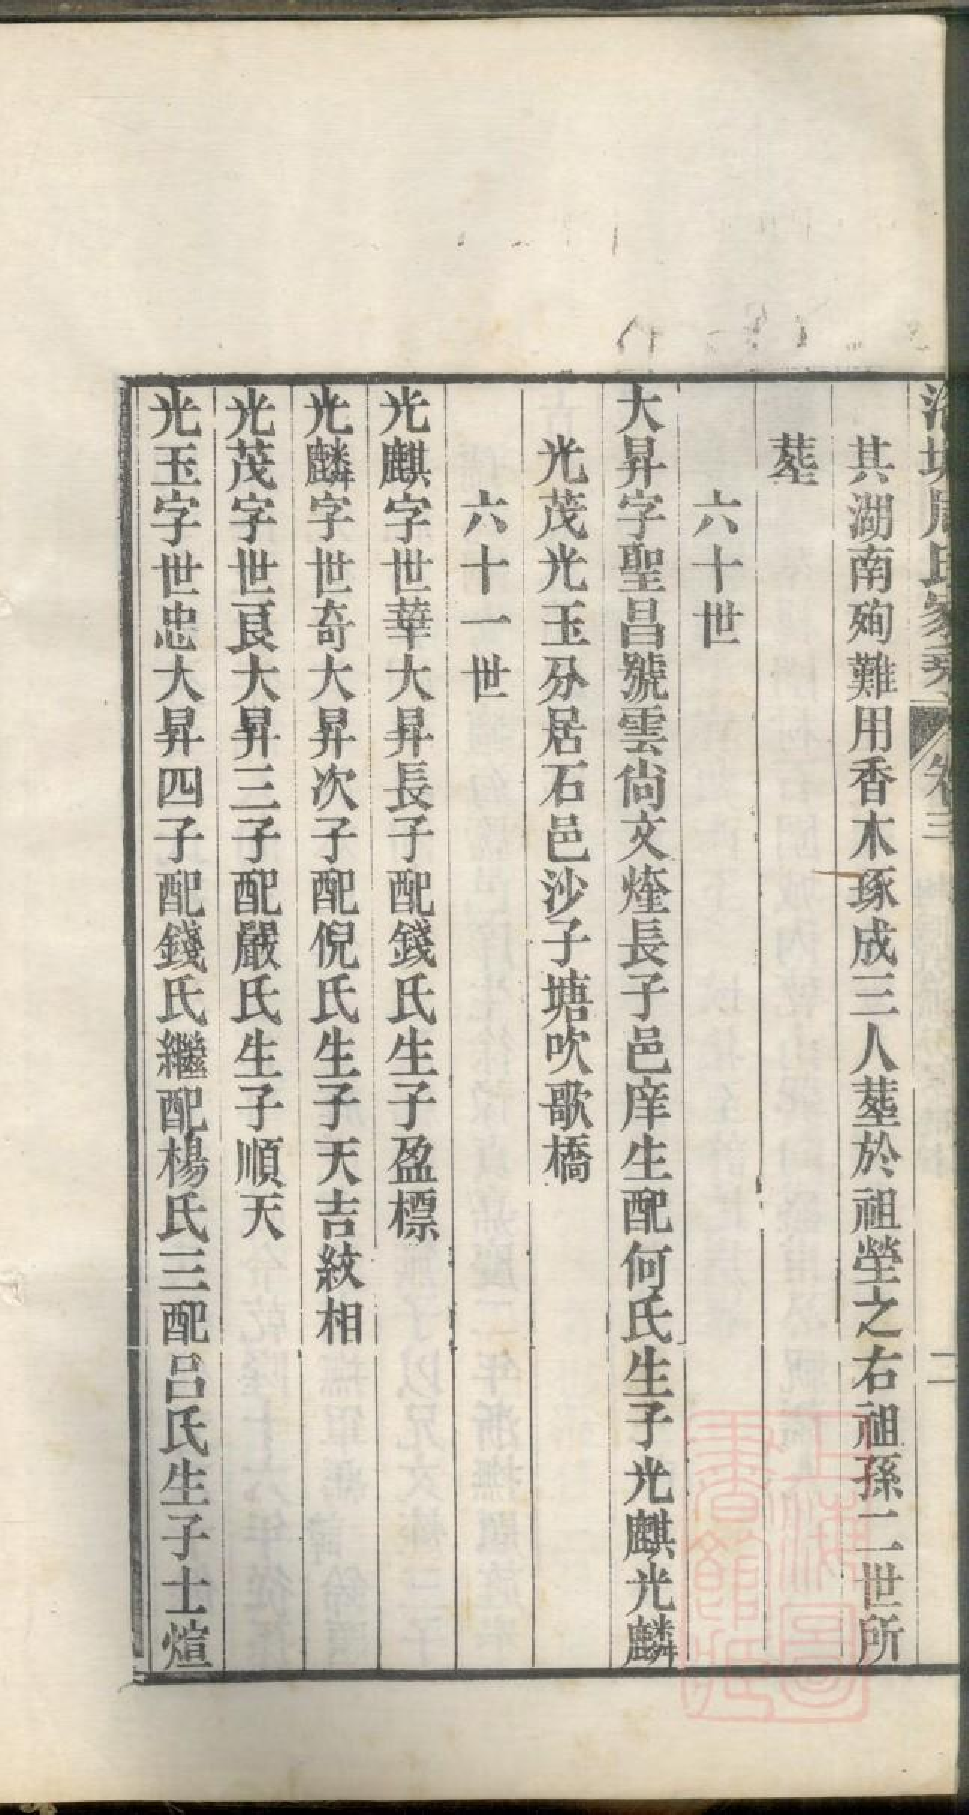 周氏家乘 卷三 二
其湖南殉難用香木琢成三人塟於祖塋之右祖孫二世所
塟
六十世
大昇字聖昌號雲尙文煃長子邑庠生配何氏生子光麒光麟
光茂光玉分居石邑沙子塘吹歌橋
六十一世
光麒字世華大昇長子配錢氏生子盈標
光麟字世奇大昇次子配倪氏生子天吉紋相
光茂字世良大昇三子配嚴氏生子順天
光玉字世忠大昇四子配錢氏繼配楊氏三配呂氏生子士煊
上海圖書館藏